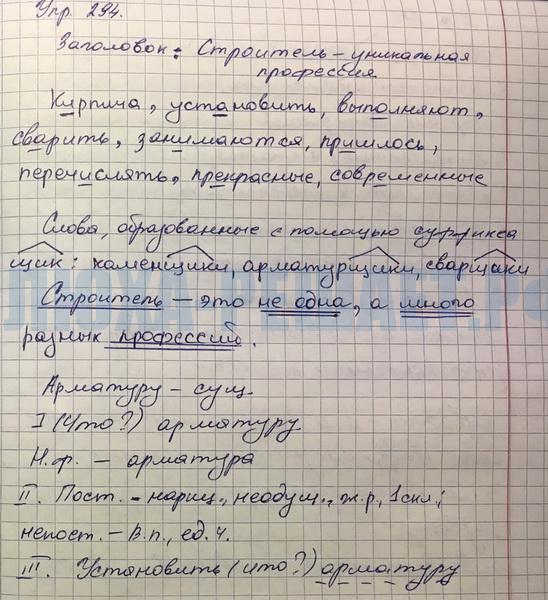 Упр. 294.
Заголовок: Строитель – уникальная
профессия.
Кирпича, установить, выполняют,
сварить, занимаются, пришлось,
перечислять, прекрасные, современные
Слова, образованные с помощью суффикса
щик: каменщики, арматурщики, сварщики
Строитель – это не одна, а много
разных профессий.
Арматуру – сущ.
I (Что?) арматуру
Н.ф. – арматура
II. Пост. – нариц., неодуш., ж.р, 1скл;
непост. – В.п., ед.ч.
III. Установить (что?) арматуру